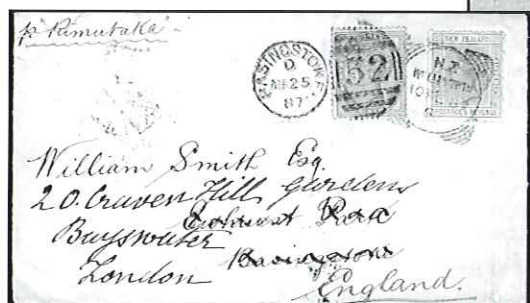 p "Rimutaka"
BASINGSTOKE
D
MR 25
87
52
NEW ZEALAND
N.Z
William Smith Esq
20. Craven Hill Gardens
Bayswater
London
England.